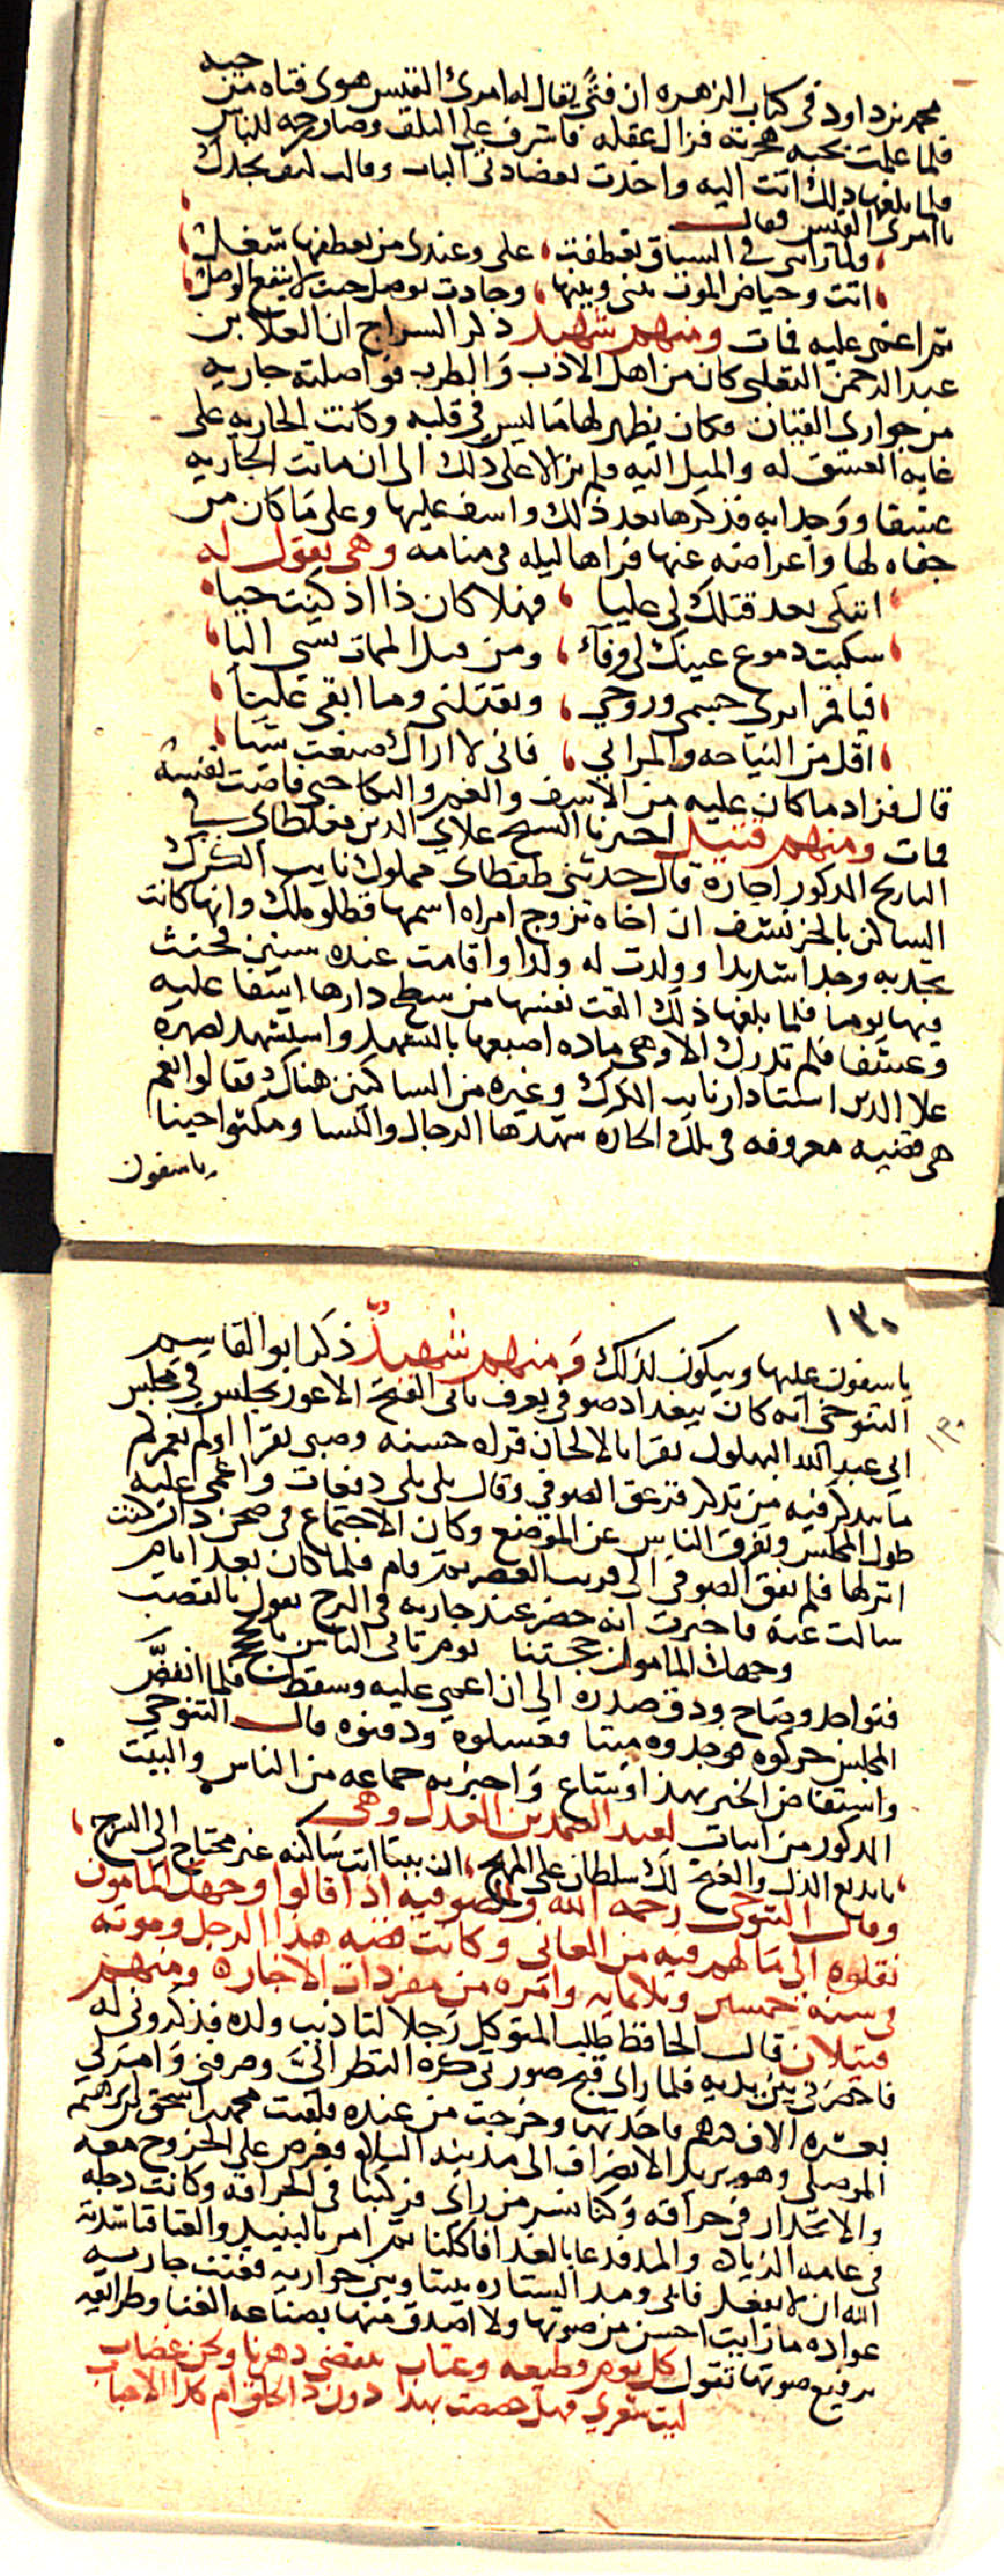 محمد بن داود فى كتاب الزهره ان فتًى يقال له امرئ القيس هوى فتاه من حيه
فلما علمت بحبه هجرته فزال عقله فاشرف على التلف وصار رحمه للناس
فلما بلغها ذلك اتت اليه واخذت بعضادتى الباب وقالت كيف تجدك
يا امرئ القيس فقال
ولما راتنى فى السياق تعطفت على وعندى من تعطفها شغل
اتت وحياض الموت بينى وبينها وجادت بوصل حيث لا ينفع الوصل
ثم اغمى عليه فمات ومنهم شهيد ذكر السراج ان العلا بن
عبد الرحمن التغلبى كان من اهل الادب والطرب فواصلته جاريه
من جوارى القيان فكان يظهر لها ما ليس فى قلبه وكانت الجاريه على
غايه العشق له والميل اليه فلم يزالا على ذلك الى ان ماتت الجاريه
عشقا ووجدا به فذكرها بعد ذلك واسف عليها وعلى ما كان من
جفاه لها واعراضه عنها فراها ليله فى منامه وهى تقول له
اتبكى بعد قتلك لى عليا فهلا كان ذا اذ كنت حيا
سكبت دموع عينك لى وفآء ومن قبل الممات تسى اليا
فيا قمرا برى جسمى وروحى ويقتلنى وما ابقى عليا
اقل من النياحه والمراثى فانى لا اراك صنعت شيا
قال فزاد ما كان عليه من الاسف والغم والبكا حتى فاضت نفسه
فمات ومنهم قتيل اخبرنا الشيخ علاى الدين مغلطاى فى
التاريخ المذكور اجازة قال حدثنى طقطاى مملوك نايب الكرك
الساكن بالخرنشف ان اخاه تزوج امراه اسمها قطلو ملك وانها كانت
تجد به وجدا شديدا وولدت له ولدا واقامت عنده سنين فحنث
فيها يوما فلما بلغها ذلك القت نفسها من سطح دارها اسفا عليه
وعشقا فلم تدرك الا وهى ماده اصبعها بالتشهد واستشهد لصهره
علا الدين استادار نايب الكرك وغيره من الساكنين هناك فقالوا نعم
هى قضيه معروفه فى تلك الحاره شهدها الرجال والنسا ومكثوا حينا
ياسفون
١٣٠
ياسفون عليها ويبكون لذلك ومنهم شهيد ذكر ابو القاسم
التنوخى انه كان ببغداد صوفى يعرف بابى الفتح الاعور يجلس فى مجلس
١٣٠
ابى عبد الله البهلول يقرا بالالحان قراه حسنه وصبى يقرا اولم نعمركم
ما يتذكر فيه من تذكر فزعق الصوفى وقال بلى بلى دفعات واغمى عليه
طول المجلس وتفرق الناس عن الموضع وكان الاجتماع فى صحن دار كنت
انزلها فلم يفق الصوفى الى قريب العصر ثم قام فلما كان بعد ايام
سالت عنه فاخبرت انه حضر عند جاريه فى الكرخ تقول بالقضيب
وجهك المامول حجتنا يوم تاتى الناس بالحجج
فتواجد وصاح ودق صدره الى ان اغمى عليه وسقط فلما انقضى
المجلس حركوه فوجدوه ميتا فغسلوه ودفنوه قال التنوخى
واستفاض الخبر بهذا وشاع واخبر به جماعه من الناس والبيت
المذكور من ابيات لعبد الصمد بن المعدل وهى
يا بديع الدل والغنج لك سلطان على المهج ان بيتا انت ساكنه غير محتاج الى السرج
وقال التنوخى رحمه الله والصوفيه اذا قالوا وجهك المامون
نقلوه الى ما لهم فيه من المعانى وكانت قصه هذا الرجل وموته
فى سنه خمسين وثلاثمايه وامره من مفردات الاخبار ومنهم
قتيلان قال الحافظ طلب المتوكل رجلا لتاديب ولده فذكرونى له
فاحضرنى بين يديه فلما راى قبح صورتى كره النظر الىّ وصرفنى وامر لى
بعشره الاف درهم فاخذتها وخرجت من عنده فلقيت محمد بن اسحق بن ابرهيم
الموصلى وهو يريد الانصراف الى مدينه السلام فعرض على الخروج معه
والانحدار فى حراقه وكنا بسر من راى فركبنا فى الحراقه وكانت دجله
فى غايه الزياده والمد فدعا بالغدا فاكلنا ثم امر بالنبيذ والغنا فناشدته
الله ان لا يفعل فابى ومد الستاره بيننا وبين جواريه فغنت جاريه
عواده ما رايت احسن من صوتها ولا احذق منها بصناعه الغنا وطرايقه
برفيع صوتها تقول كل يوم قطيعه وعتاب ينقضى دهرنا ونحن غضاب
ليت شعرى فهل خصصت بهذا دون ذا الخلق ام كذا الاحباب